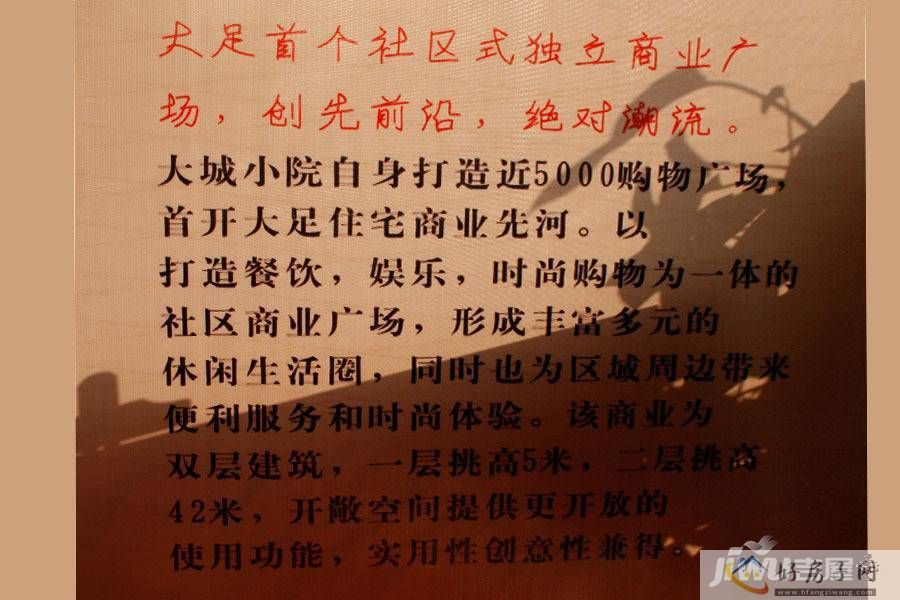 大足首个社区式独立商业广
场，创先前沿，绝对潮流。
大城小院自身打造近5000购物广场，
首开大足住宅商业先河。以
打造餐饮，娱乐，时尚购物为一体的
社区商业广场，形成丰富多元的
休闲生活圈，同时也为区域周边带来
便利服务和时尚体验。该商业为
双层建筑，一层挑高5米，二层挑高
42米，开敞空间提供更开放的
使用功能，实用性创意性兼得。
好房子网
www.hfangziwang.com